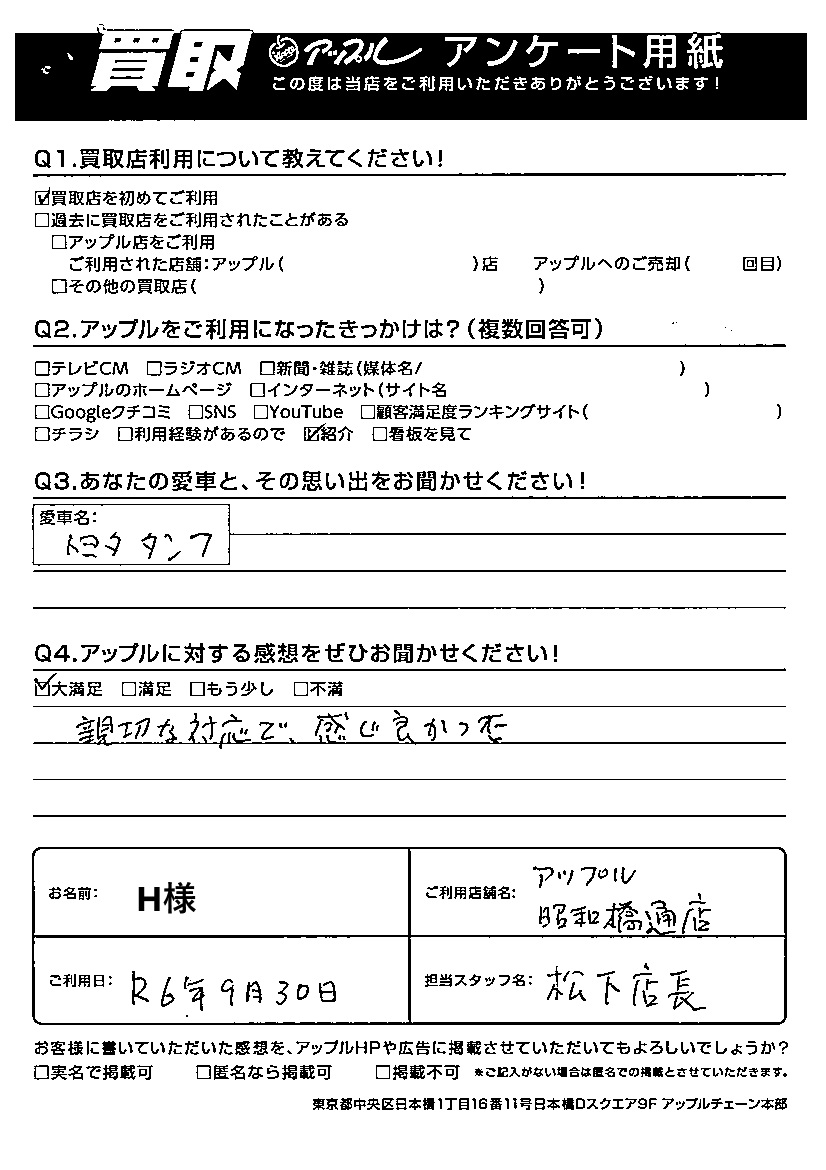 買取 アップル アンケート用紙
この度は当店をご利用いただきありがとうございます!
Q1.買取店利用について教えてください!
☑買取店を初めてご利用
□過去に買取店をご利用されたことがある
□アップル店をご利用
ご利用された店舗:アップル( )店 アップルへのご売却( 回目)
□その他の買取店( )
Q2.アップルをご利用になったきっかけは?(複数回答可)
□テレビCM □ラジオCM □新聞・雑誌(媒体名/ )
□アップルのホームページ □インターネット(サイト名 )
□Googleクチコミ □SNS □YouTube □顧客満足度ランキングサイト( )
□チラシ □利用経験があるので ☑紹介 □看板を見て
Q3.あなたの愛車と、その思い出をお聞かせください!
愛車名:
トヨタ タンク
Q4.アップルに対する感想をぜひお聞かせください!
☑大満足 □満足 □もう少し □不満
親切な対応で、感じ良かった
お名前: H様
ご利用店舗名: アップル
昭和橋通店
ご利用日: R6年9月30日
担当スタッフ名: 松下店長
お客様に書いていただいた感想を、アップルHPや広告に掲載させていただいてもよろしいでしょうか?
□実名で掲載可 □匿名なら掲載可 □掲載不可 *ご記入がない場合は匿名での掲載とさせていただきます。
東京都中央区日本橋1丁目16番11号日本橋Dスクエア9F アップルチェーン本部